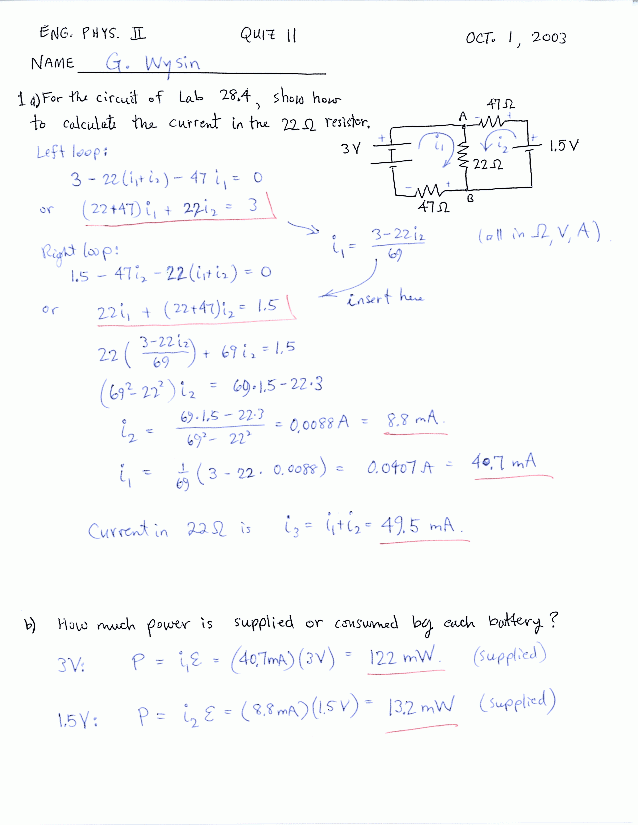 ENG. PHYS. II QUIZ 11 OCT. 1, 2003
NAME G. Wysin
1 a) For the circuit of Lab 28.4, show how
to calculate the current in the 22 Ω resistor.
47 Ω
A
+
+
+
3 V
i₁
i₂
22 Ω
1.5 V
+
47 Ω
B
Left loop:
3 - 22(i₁+i₂) - 47 i₁ = 0
or (22+47) i₁ + 22 i₂ = 3
i₁ = (3-22 i₂)/69 (all in Ω, V, A)
Right loop:
1.5 - 47 i₂ - 22(i₁+i₂) = 0
insert here
or 22 i₁ + (22+47) i₂ = 1.5
22 ( (3-22 i₂)/69 ) + 69 i₂ = 1.5
(69² - 22²) i₂ = 69·1.5 - 22·3
i₂ = (69·1.5 - 22·3)/(69² - 22²) = 0.0088 A = 8.8 mA.
i₁ = 1/69 (3 - 22 · 0.0088) = 0.0407 A = 40.7 mA
Current in 22 Ω is i₃ = i₁+i₂ = 49.5 mA.
b) How much power is supplied or consumed by each battery?
3V: P = i₁ℰ = (40.7mA)(3V) = 122 mW. (supplied)
1.5V: P = i₂ℰ = (8.8mA)(1.5V) = 13.2 mW (supplied)